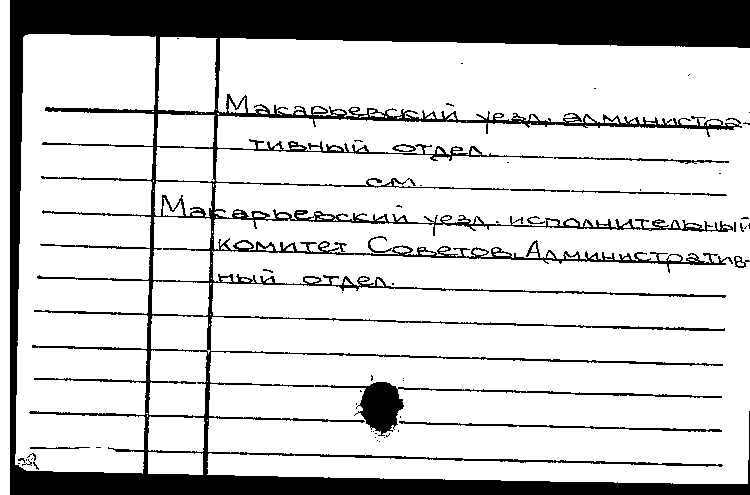 Макарьевский уезд. администра-
тивный отдел.
см.
Макарьевский уезд. исполнительный
комитет Советов. Административ-
ный отдел.